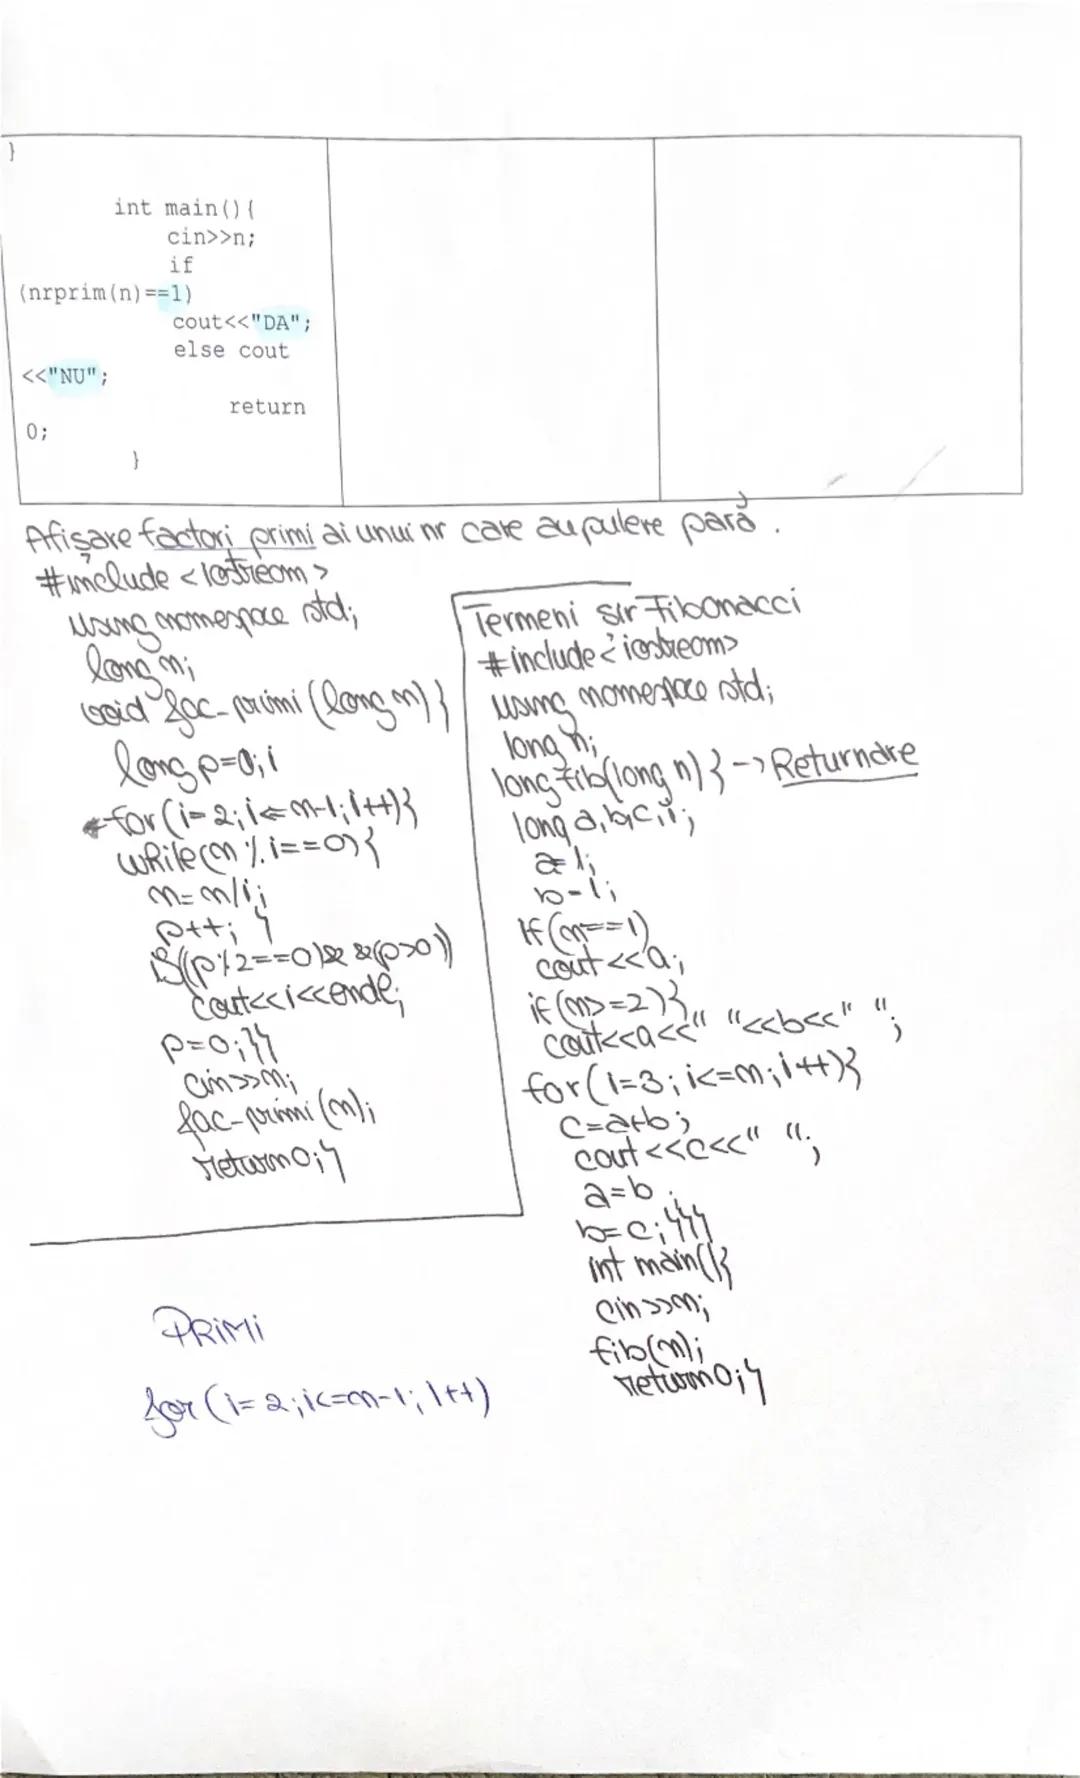 }
int main(){
cin>>n;
if
(nrprim(n)==1)
cout<<"DA";
else cout
<<"NU";
return
0;
}
Afișare factori primi ai unui nr care au putere pară.
#include <iostream>
using namespace std;
long n;
void fac-primi (long n){
long p=0, i
for(i=2; i<=n-1; i++){
while(n%i==0){
n=n/i;
p++; }
if((p%2==0)&&(p>0))
cout<<i<<endl;
p=0;}}
cin>>n;
fac-primi(n);
return 0;}
Termeni sir Fibonacci
#include <iostream>
using namespace std;
long n;
long fib(long n){ -> Returnare
long a,b,c,i;
a=1;
b=1;
if(n==1)
cout<<a;
if(n>=2){
cout<<a<<" "<<b<<" ";
for(i=3; i<=n; i++){
c=a+b;
cout<<c<<" ";
a=b;
b=c;}}}
int main(){
cin>>n;
fib(n);
return 0;}
PRIMI
for(i=2; i<=n-1; i++)